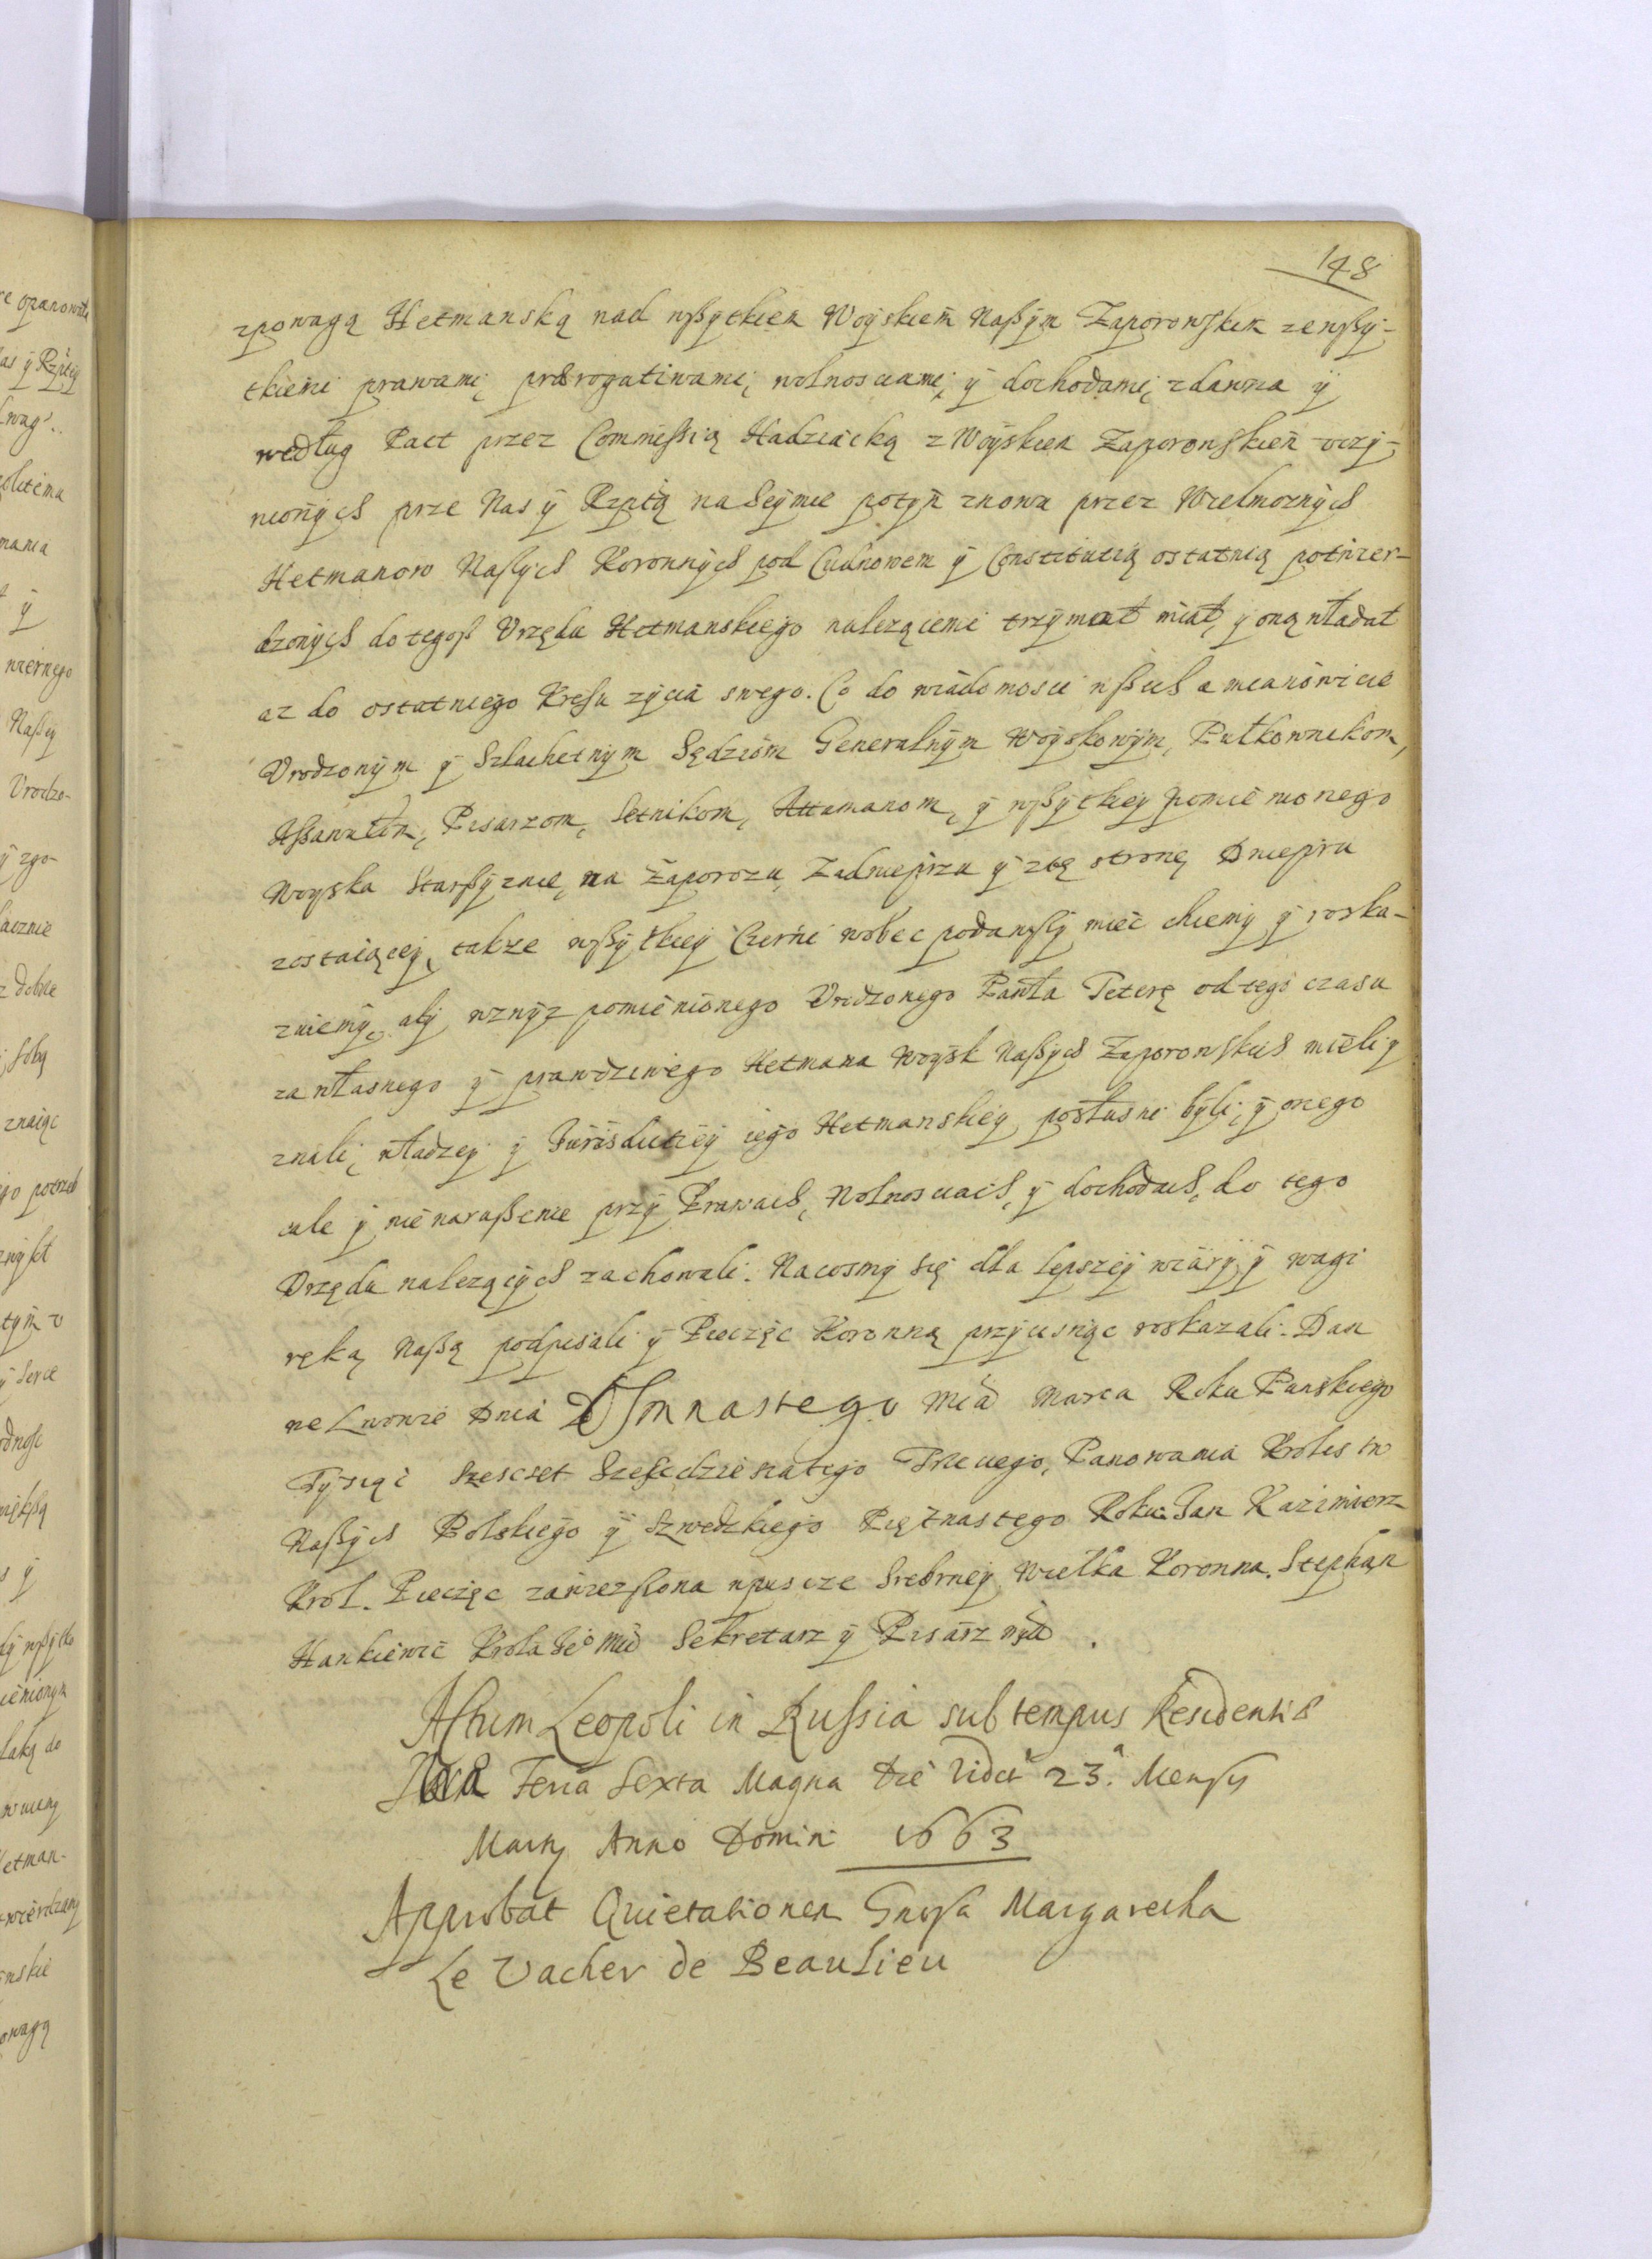 148
zpowagą Hetmanską nad wßytkiem Woyskiem Naßym Zaporowskim zewßy-
tkiemi prawami, prærogatiwami, wolnosciami, y dochodami, zdawna y
według Pact przez Commissią Hadziacką z Woyskiem Zaporowskiem uczy-
nionych prze Nas y Rzptą na Seymie potym znowu przez Wielmoznych
Hetmanow Naßych Koronnych pod Cudnowem y Constitutią ostatnią potwier-
dzonych do tegoß Vrzędu Hetmanskiego nalezącemi trzymał miał, y oną władał
az do ostatniego Kresu zycia swego. Co do wiadomosci wßech a mianowicie
Vrodzonym y Szlachetnym Sędziom Generalnym Woyskowym, Pułkownikom,
Aßawułom, Pisarzom, Setnikom, Attamanom, y wßytkiey pomienionego
Woyska Starßyznie, na Zaporozu, Zadnieprzu y ztę stronę Dniepru
zostaiącey, takze wßytkiey Czerni wobec podawßy miec chcemy y roska-
zuiemy, aby wzwyz pomienionego Vrodzonego Pawła Teterę od tego czasu
za własnego y prawdziwego Hetmana Woysk Naßych Zaporowskich mieli y
znali, władzey y Jurisdictiey iego Hetmanskiey posłusni byli, y onego
cale y nienarußenie przy Prawach, Wolnosciach, y dochodach, do tego
Vrzędu nalezących zachowali. Nacosmy się dla lepszey wiary y wagi
ręką Naßą podpisali y Pieczęc Koronną przycisnąc roskazali. Dan
we Lwowie Dnia Osmnastego Mca Marca Roku Panskiego
Tysiąc Szescset Szescdziesiatego Trzeciego, Panowania Krolestw
Naßych Polskiego y Szwedzkiego Piętnastego Roku. Jan Kazimierz
Krol. Pieczęc zawießona wpuszce Srebrney Wielka Koronna. Stephan
Hankiewic Krola Jeo Mci Sekretarz y Pisarz
Actum Leopoli in Russia sub tempus Residentiæ
Feria Sexta Magna Die Vidct 23a. Mensis
Martij Anno Domini 1663
Approbat Quietationem Gnosa Margaretha
Le Vacher de Beaulieu